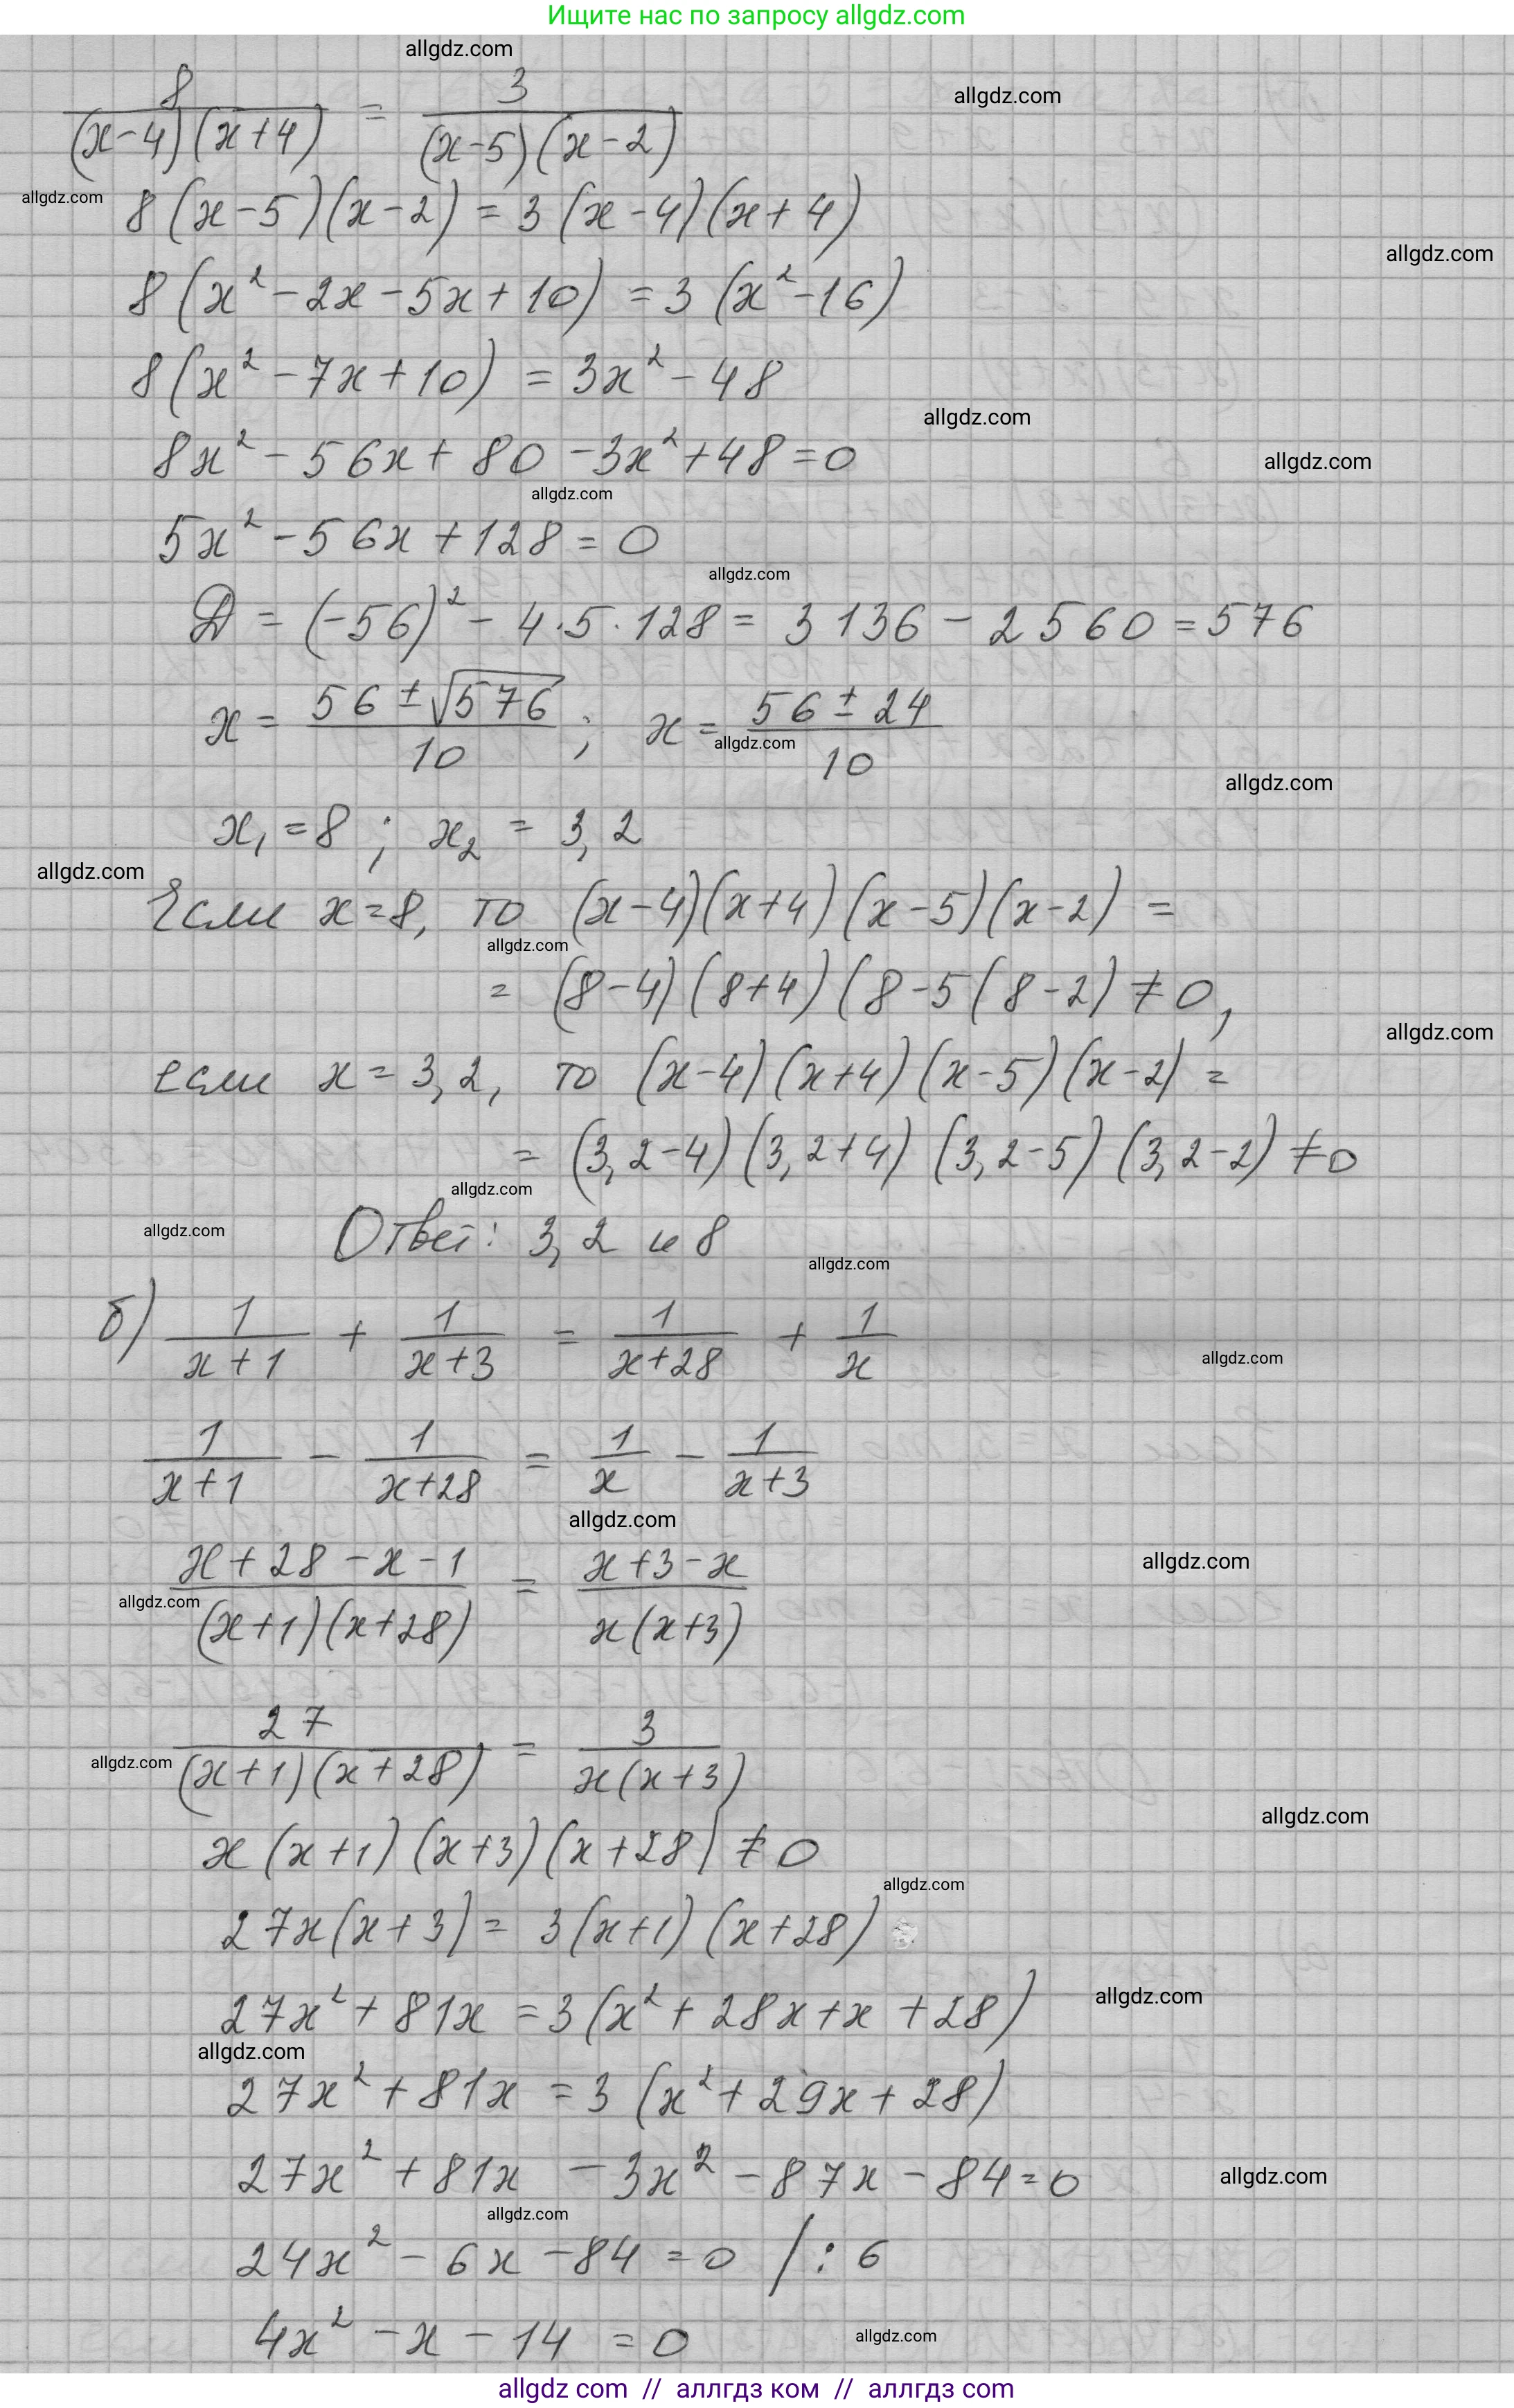 Ищите нас по запросу allgdz.com
allgdz.com
8/((x-4)(x+4)) = 3/((x-5)(x-2))
allgdz.com
allgdz.com
8(x-5)(x-2) = 3(x-4)(x+4)
allgdz.com
8(x²-2x-5x+10) = 3(x²-16)
8(x²-7x+10) = 3x²-48
allgdz.com
8x²-56x+80-3x²+48=0
allgdz.com
allgdz.com
5x²-56x+128=0
allgdz.com
D=(-56)²-4·5·128=3136-2560=576
x=(56±√576)/10; x=(56±24)/10
allgdz.com
allgdz.com
x₁=8; x₂=3,2
allgdz.com
Если x=8, то (x-4)(x+4)(x-5)(x-2)=
allgdz.com
=(8-4)(8+4)(8-5(8-2)≠0,
allgdz.com
если x=3,2, то (x-4)(x+4)(x-5)(x-2)=
=(3,2-4)(3,2+4)(3,2-5)(3,2-2)≠0
allgdz.com
allgdz.com
Ответ: 3,2 и 8
allgdz.com
б) 1/(x+1) + 1/(x+3) = 1/(x+28) + 1/x
allgdz.com
1/(x+1) - 1/(x+28) = 1/x - 1/(x+3)
allgdz.com
allgdz.com
(x+28-x-1)/((x+1)(x+28)) = (x+3-x)/(x(x+3))
allgdz.com
27/((x+1)(x+28)) = 3/(x(x+3))
allgdz.com
allgdz.com
x(x+1)(x+3)(x+28)≠0
allgdz.com
27x(x+3)=3(x+1)(x+28)
allgdz.com
27x²+81x=3(x²+28x+x+28)
allgdz.com
27x²+81x=3(x²+29x+28)
27x²+81x-3x²-87x-84=0
allgdz.com
allgdz.com
24x²-6x-84=0 /:6
4x²-x-14=0
allgdz.com
allgdz com // аллгдз ком // аллгдз com